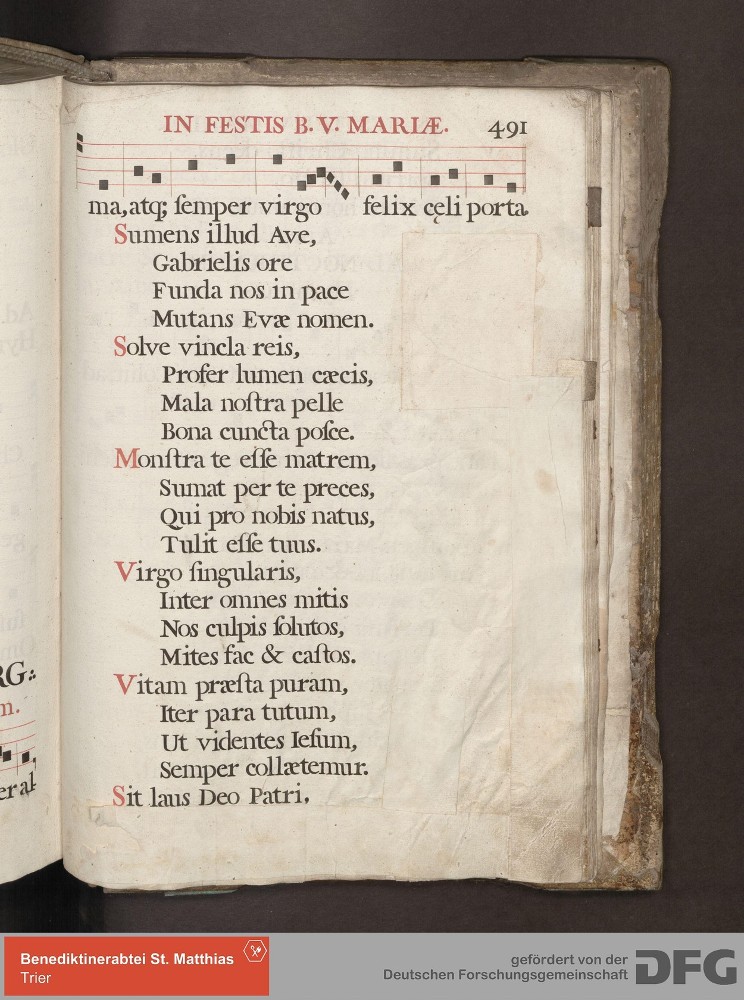 RG:
n.
er al
IN FESTIS B. V. MARIÆ. 491
ma, atq; ſemper virgo felix cęli porta.
Sumens illud Ave,
Gabrielis ore
Funda nos in pace
Mutans Evæ nomen.
Solve vincla reis,
Profer lumen cæcis,
Mala noſtra pelle
Bona cuncta poſce.
Monſtra te eſſe matrem,
Sumat per te preces,
Qui pro nobis natus,
Tulit eſſe tuus.
Virgo ſingularis,
Inter omnes mitis
Nos culpis ſolutos,
Mites fac & caſtos.
Vitam præſta puram,
Iter para tutum,
Ut videntes Ieſum,
Semper collætemur.
Sit laus Deo Patri,
Benediktinerabtei St. Matthias
Trier
gefördert von der
Deutschen Forschungsgemeinschaft
DFG